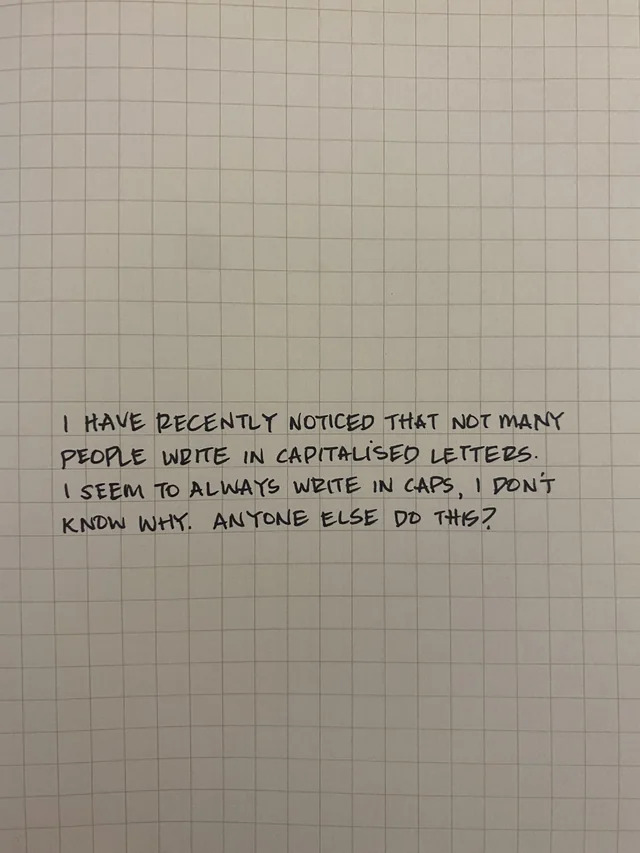 I HAVE RECENTLY NOTICED THAT NOT MANY
PEOPLE WRITE IN CAPITALiSED LETTERS.
I SEEM TO ALWAYS WRITE IN CAPS, I DON'T
KNOW WHY. ANYONE ELSE DO THIS?